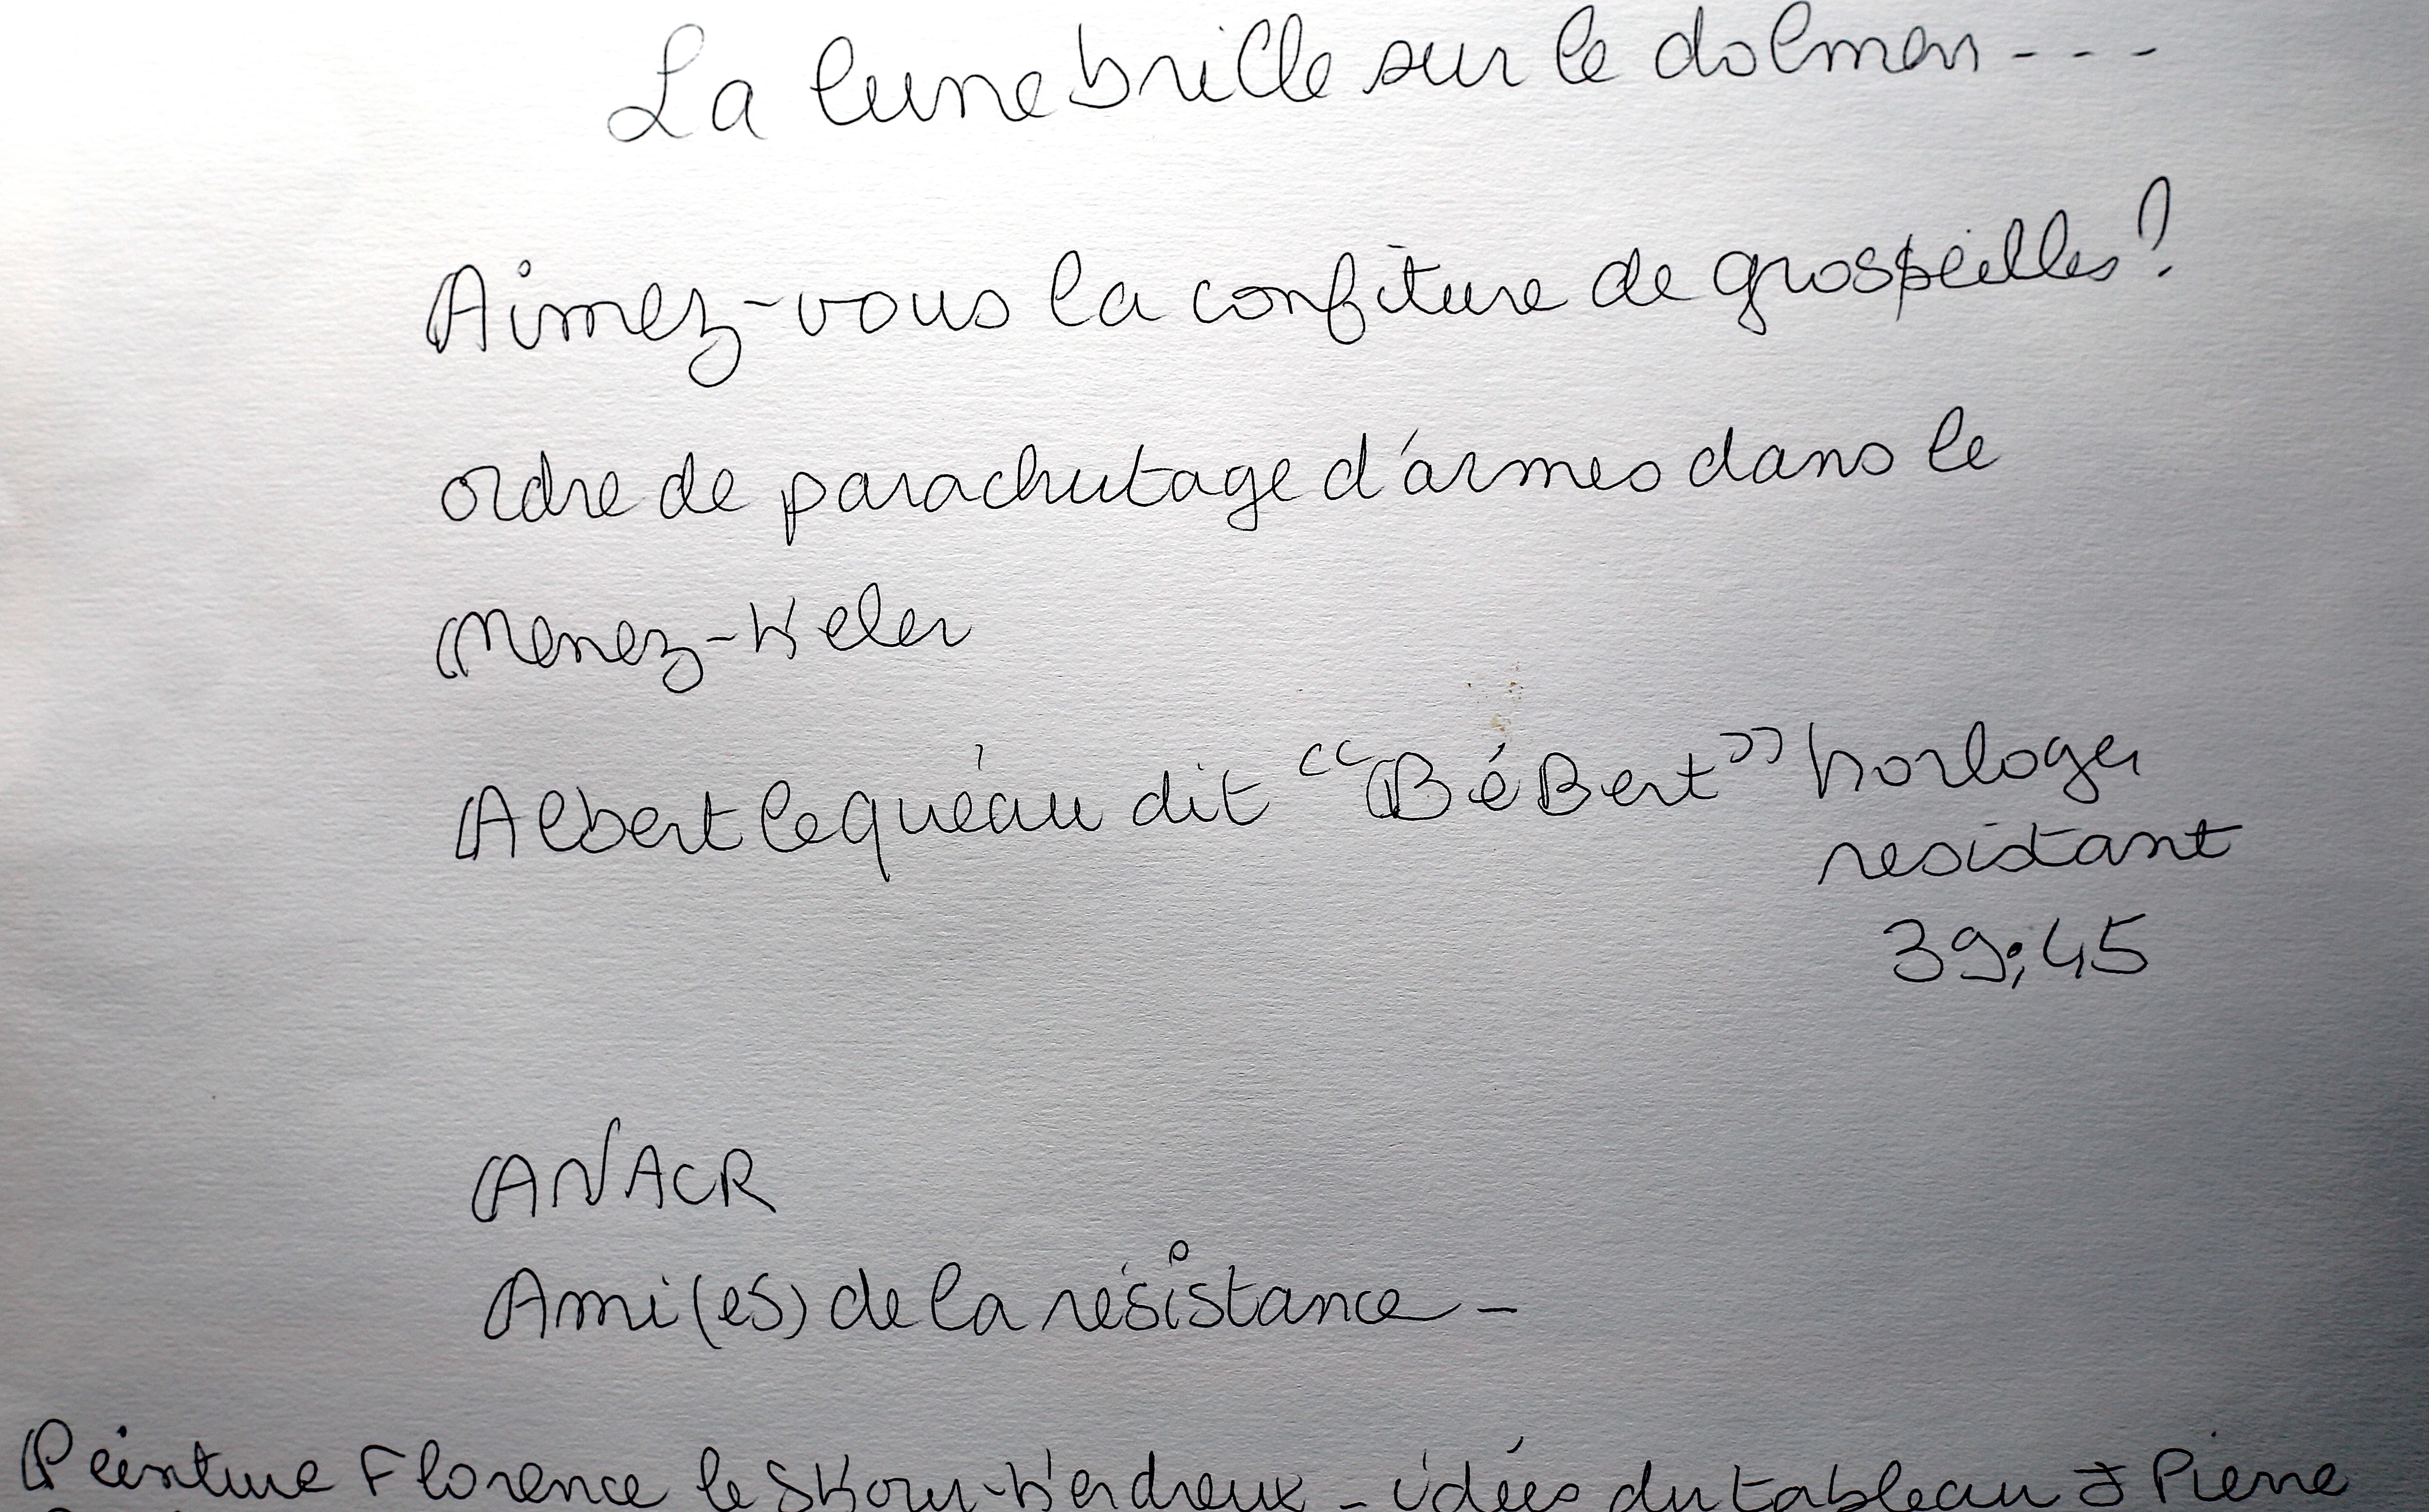 La lune brille sur le dolmen - - -
Aimez-vous la confiture de grospeilles ?
ordre de parachutage d'armes dans le
Menez-Keler
Albert le quéau dit "BéBert" horloger
resistant
39;45
ANACR
Ami(es) de la résistance -
Peinture Florence le Skour-Kerdreux - idées du tableau J Pierre